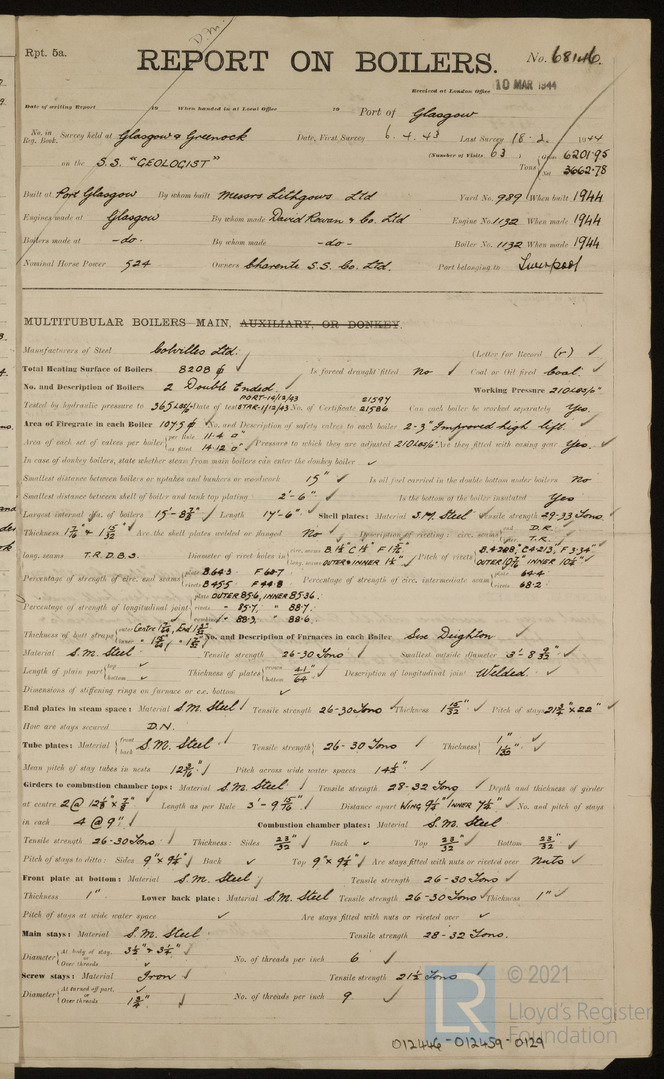 D.M.
Rpt. 5a.
REPORT ON BOILERS.
No. 68146.
Received at London Office 10 MAR 1944
Date of writing Report 19 When handed in at Local Office 19 Port of Glasgow
No. in Reg. Book. Survey held at Glasgow & Greenock Date, First Survey 6.4.43 Last Survey 18.2. 1944
on the S.S. "GEOLOGIST" (Number of Visits 63) Tons Gross 6201.95 Net 3662.78
Built at Port Glasgow By whom built Messrs Lithgows Ltd Yard No. 989 When built 1944
Engines made at Glasgow By whom made David Rowan & Co. Ltd Engine No. 1132 When made 1944
Boilers made at -do- By whom made -do- Boiler No. 1132 When made 1944
Nominal Horse Power 524 Owners Charente S.S. Co. Ltd. Port belonging to Liverpool
MULTITUBULAR BOILERS MAIN, AUXILIARY, OR DONKEY.
Manufacturers of Steel Colvilles Ltd. (Letter for Record (r)
Total Heating Surface of Boilers 8208 Is forced draught fitted No Coal or Oil fired Coal.
No. and Description of Boilers 2 Double Ended. Working Pressure 210 LBS/□"
Tested by hydraulic pressure to 365 LBS/□" Date of test PORT-14/12/43 STAR-11/12/43 No. of Certificate 21597 21586 Can each boiler be worked separately Yes.
Area of Firegrate in each Boiler 107.5 No. and Description of safety valves to each boiler 2-3" Improved high lift.
Area of each set of valves per boiler per Rule 11.4 □" as fitted 14.12 □" Pressure to which they are adjusted 210 LBS/□" Are they fitted with easing gear Yes.
In case of donkey boilers, state whether steam from main boilers can enter the donkey boiler ✓
Smallest distance between boilers or uptakes and bunkers or woodwork 15" Is oil fuel carried in the double bottom under boilers No
Smallest distance between shell of boiler and tank top plating 2'-6" Is the bottom of the boiler insulated Yes
Largest internal dia. of boilers 15'-8 7/8" Length 17'-6" Shell plates: Material S.M. Steel Tensile strength 29-33 Tons
Thickness 1 7/16 & 1 15/32 Are the shell plates welded or flanged No Description of riveting: circ. seams end D.R. inter. T.R.
long. seams T.R.D.B.S. Diameter of rivet holes in circ. seams long. seams OUTER & INNER 1½" Pitch of rivets B. 4.208" C 4.213, F 3.34" OUTER 10 7/16" INNER 10⅛"
Percentage of strength of circ. end seams plate B 64.3 F 60.7 rivets B 45.5 F 44.8 Percentage of strength of circ. intermediate seam plate 64.4 rivets 68.2
Percentage of strength of longitudinal joint plate OUTER 85.6, INNER 85.36. rivets " 85.7, " 88.7. combined " 88.3, " 88.6.
Thickness of butt straps outer inner No. and Description of Furnaces in each Boiler Six Deighton
Material S.M. Steel Tensile strength 26-30 Tons Smallest outside diameter 3'-8 9/32"
Length of plain part top bottom Thickness of plates crown bottom 41/64" Description of longitudinal joint Welded.
Dimensions of stiffening rings on furnace or c.c. bottom ✓
End plates in steam space: Material S.M. Steel Tensile strength 26-30 Tons Thickness 1 15/32" Pitch of stays 21¾" x 22"
How are stays secured D.N.
Tube plates: Material front back S.M. Steel Tensile strength 26-30 Tons Thickness 1"
Mean pitch of stay tubes in nests 12 3/16" Pitch across wide water spaces 14½"
Girders to combustion chamber tops: Material S.M. Steel Tensile strength 28-32 Tons Depth and thickness of girder
at centre 2 @ 12⅛" x ⅞" Length as per Rule 3'-9 15/16" Distance apart WING 9½" INNER 7½" No. and pitch of stays
in each 4 @ 9" Combustion chamber plates: Material S.M. Steel
Tensile strength 26-30 Tons Thickness: Sides 23/32" Back ✓ Top 23/32" Bottom 23/32"
Pitch of stays to ditto: Sides 9" x 9½" Back ✓ Top 9" x 9½" Are stays fitted with nuts or riveted over Nuts
Front plate at bottom: Material S.M. Steel Tensile strength 26-30 Tons
Thickness 1" Lower back plate: Material S.M. Steel Tensile strength 26-30 Tons Thickness 1"
Pitch of stays at wide water space ✓ Are stays fitted with nuts or riveted over ✓
Main stays: Material S.M. Steel Tensile strength 28-32 Tons.
Diameter At body of stay, or Over threads 3½" & 3¼" No. of threads per inch 6
Screw stays: Material Iron Tensile strength 21½ Tons
Diameter At turned off part, or Over threads 1¾" No. of threads per inch 9
LR © 2021
Lloyd's Register
Foundation
012446-012459-0129